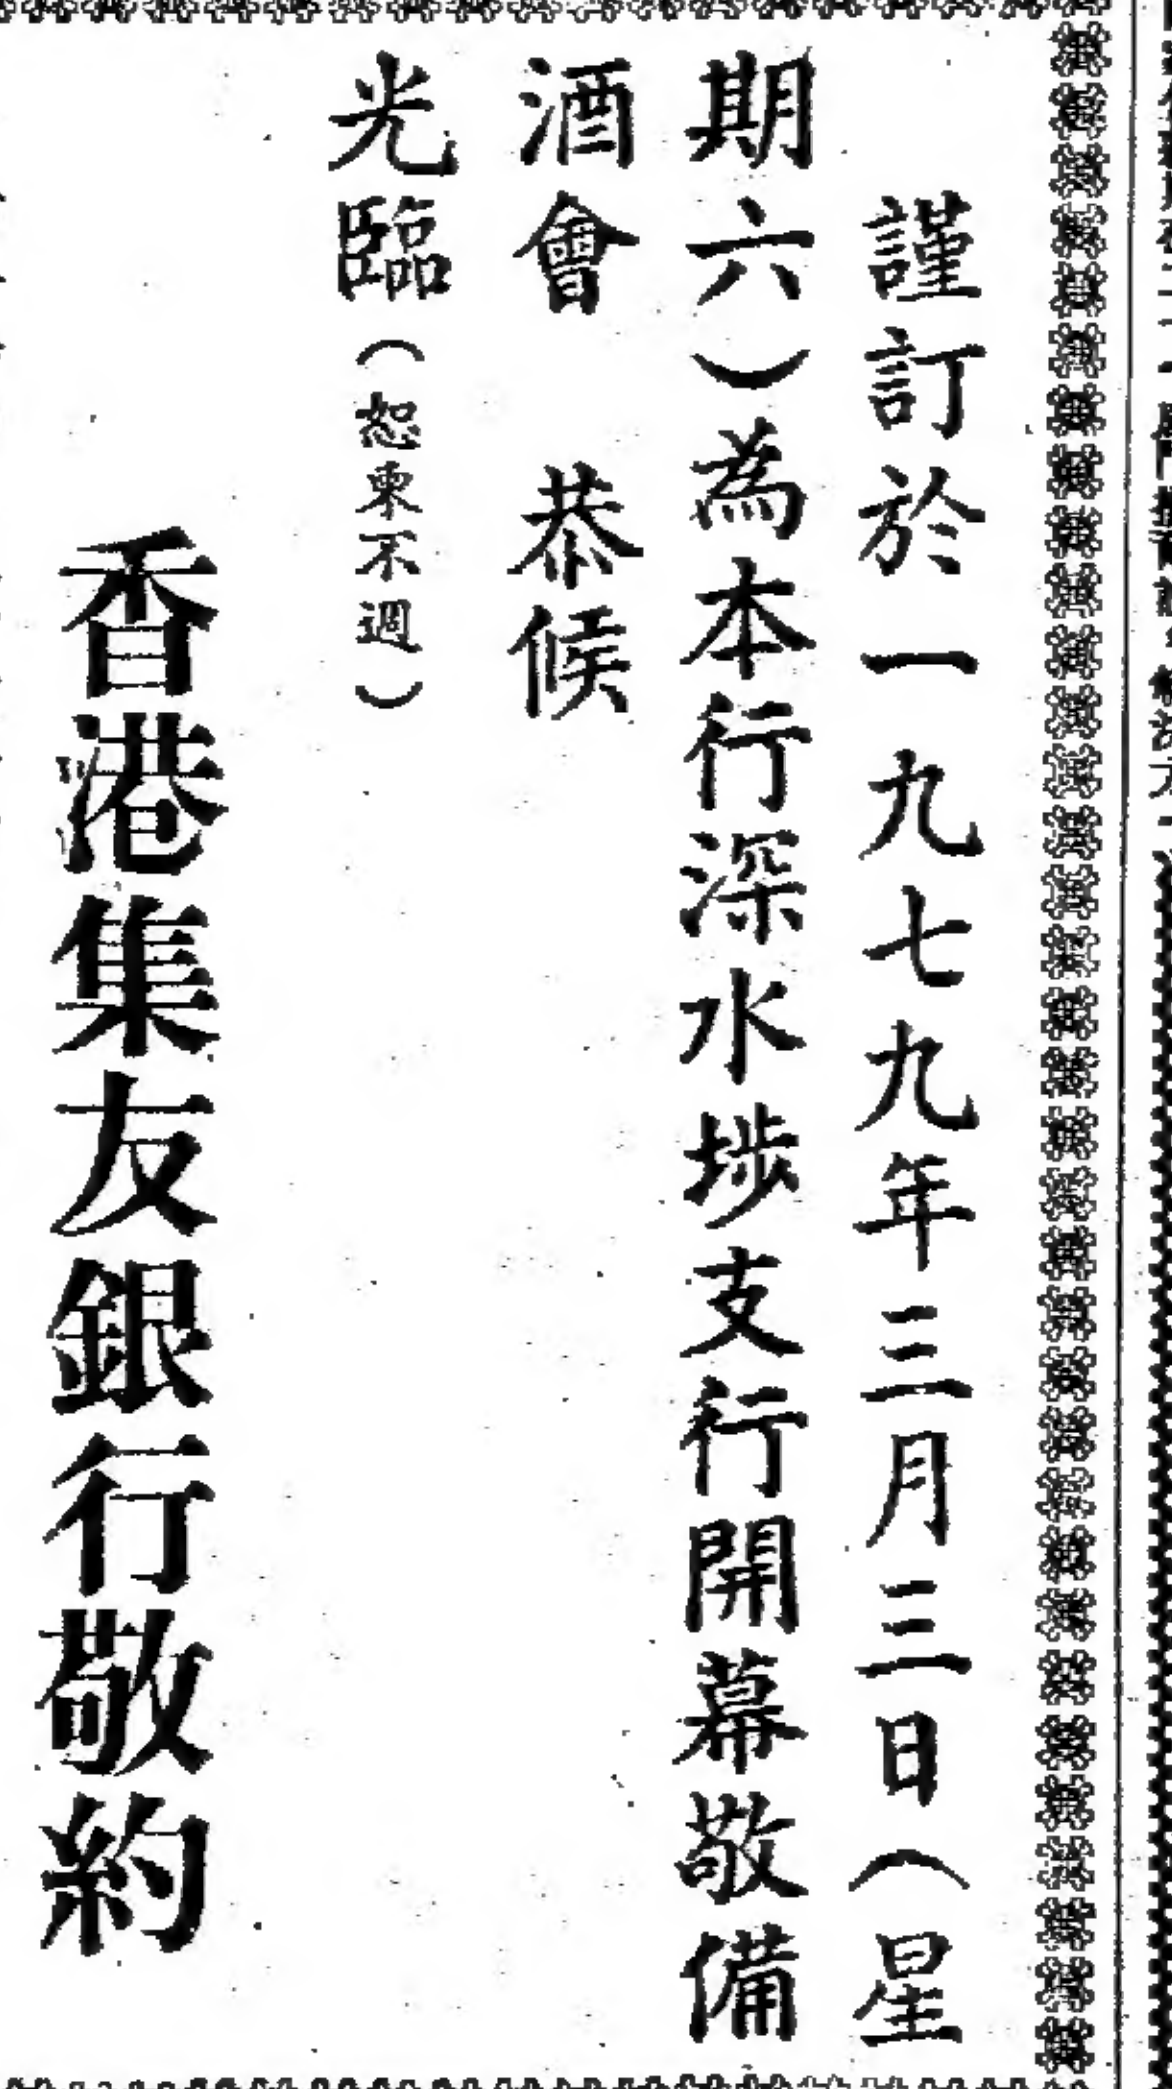 謹訂於一九七九年三月三日（星
期六）為本行深水埗支行開幕敬備
酒會　恭候
光臨（恕柬不週）
香港集友銀行敬約